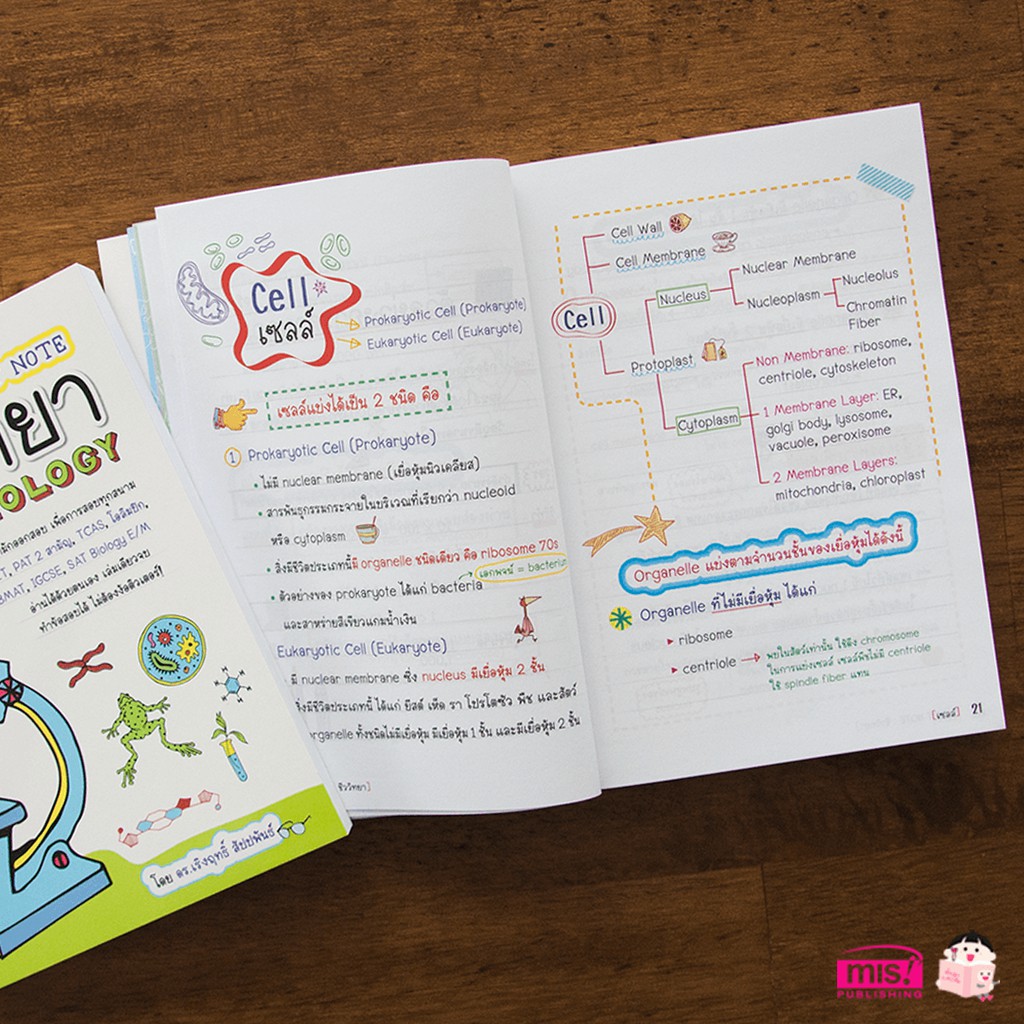 NOTE
BIOLOGY
อ่านได้ด้วยตนเอง เล่มเดียวจบ
ทำข้อสอบได้ ไม่ต้องง้อติวเตอร์!
โดย ดร.เริงฤทธิ์ สัปปพันธ์
Cell
เซลล์
Prokaryotic Cell (Prokaryote)
Eukaryotic Cell (Eukaryote)
เซลล์แบ่งได้เป็น 2 ชนิด คือ
1 Prokaryotic Cell (Prokaryote)
• ไม่มี nuclear membrane (เยื่อหุ้มนิวเคลียส)
• สารพันธุกรรมกระจายในบริเวณที่เรียกว่า nucleoid
หรือ cytoplasm
• สิ่งมีชีวิตประเภทนี้มี organelle ชนิดเดียว คือ ribosome 70s
เอกพจน์ = bacterium
• ตัวอย่างของ prokaryote ได้แก่ bacteria
และสาหร่ายสีเขียวแกมน้ำเงิน
Eukaryotic Cell (Eukaryote)
มี nuclear membrane ซึ่ง nucleus มีเยื่อหุ้ม 2 ชั้น
สิ่งมีชีวิตประเภทนี้ ได้แก่ ยีสต์ เห็ด รา โปรโตซัว พืช และสัตว์
organelle ทั้งชนิดไม่มีเยื่อหุ้ม มีเยื่อหุ้ม 1 ชั้น และมีเยื่อหุ้ม 2 ชั้น
ชีววิทยา]
Cell
Cell Wall
Cell Membrane
Protoplast
Nucleus
Nuclear Membrane
Nucleoplasm
Nucleolus
Chromatin
Fiber
Cytoplasm
Non Membrane: ribosome,
centriole, cytoskeleton
1 Membrane Layer: ER,
golgi body, lysosome,
vacuole, peroxisome
2 Membrane Layers:
mitochondria, chloroplast
Organelle แบ่งตามจำนวนชั้นของเยื่อหุ้มได้ดังนี้
Organelle ที่ไม่มีเยื่อหุ้ม ได้แก่
ribosome
centriole
พบในสัตว์เท่านั้น ใช้ดึง chromosome
ในการแบ่งเซลล์ เซลล์พืชไม่มี centriole
ใช้ spindle fiber แทน
[เซลล์] 21
mis!
PUBLISHING